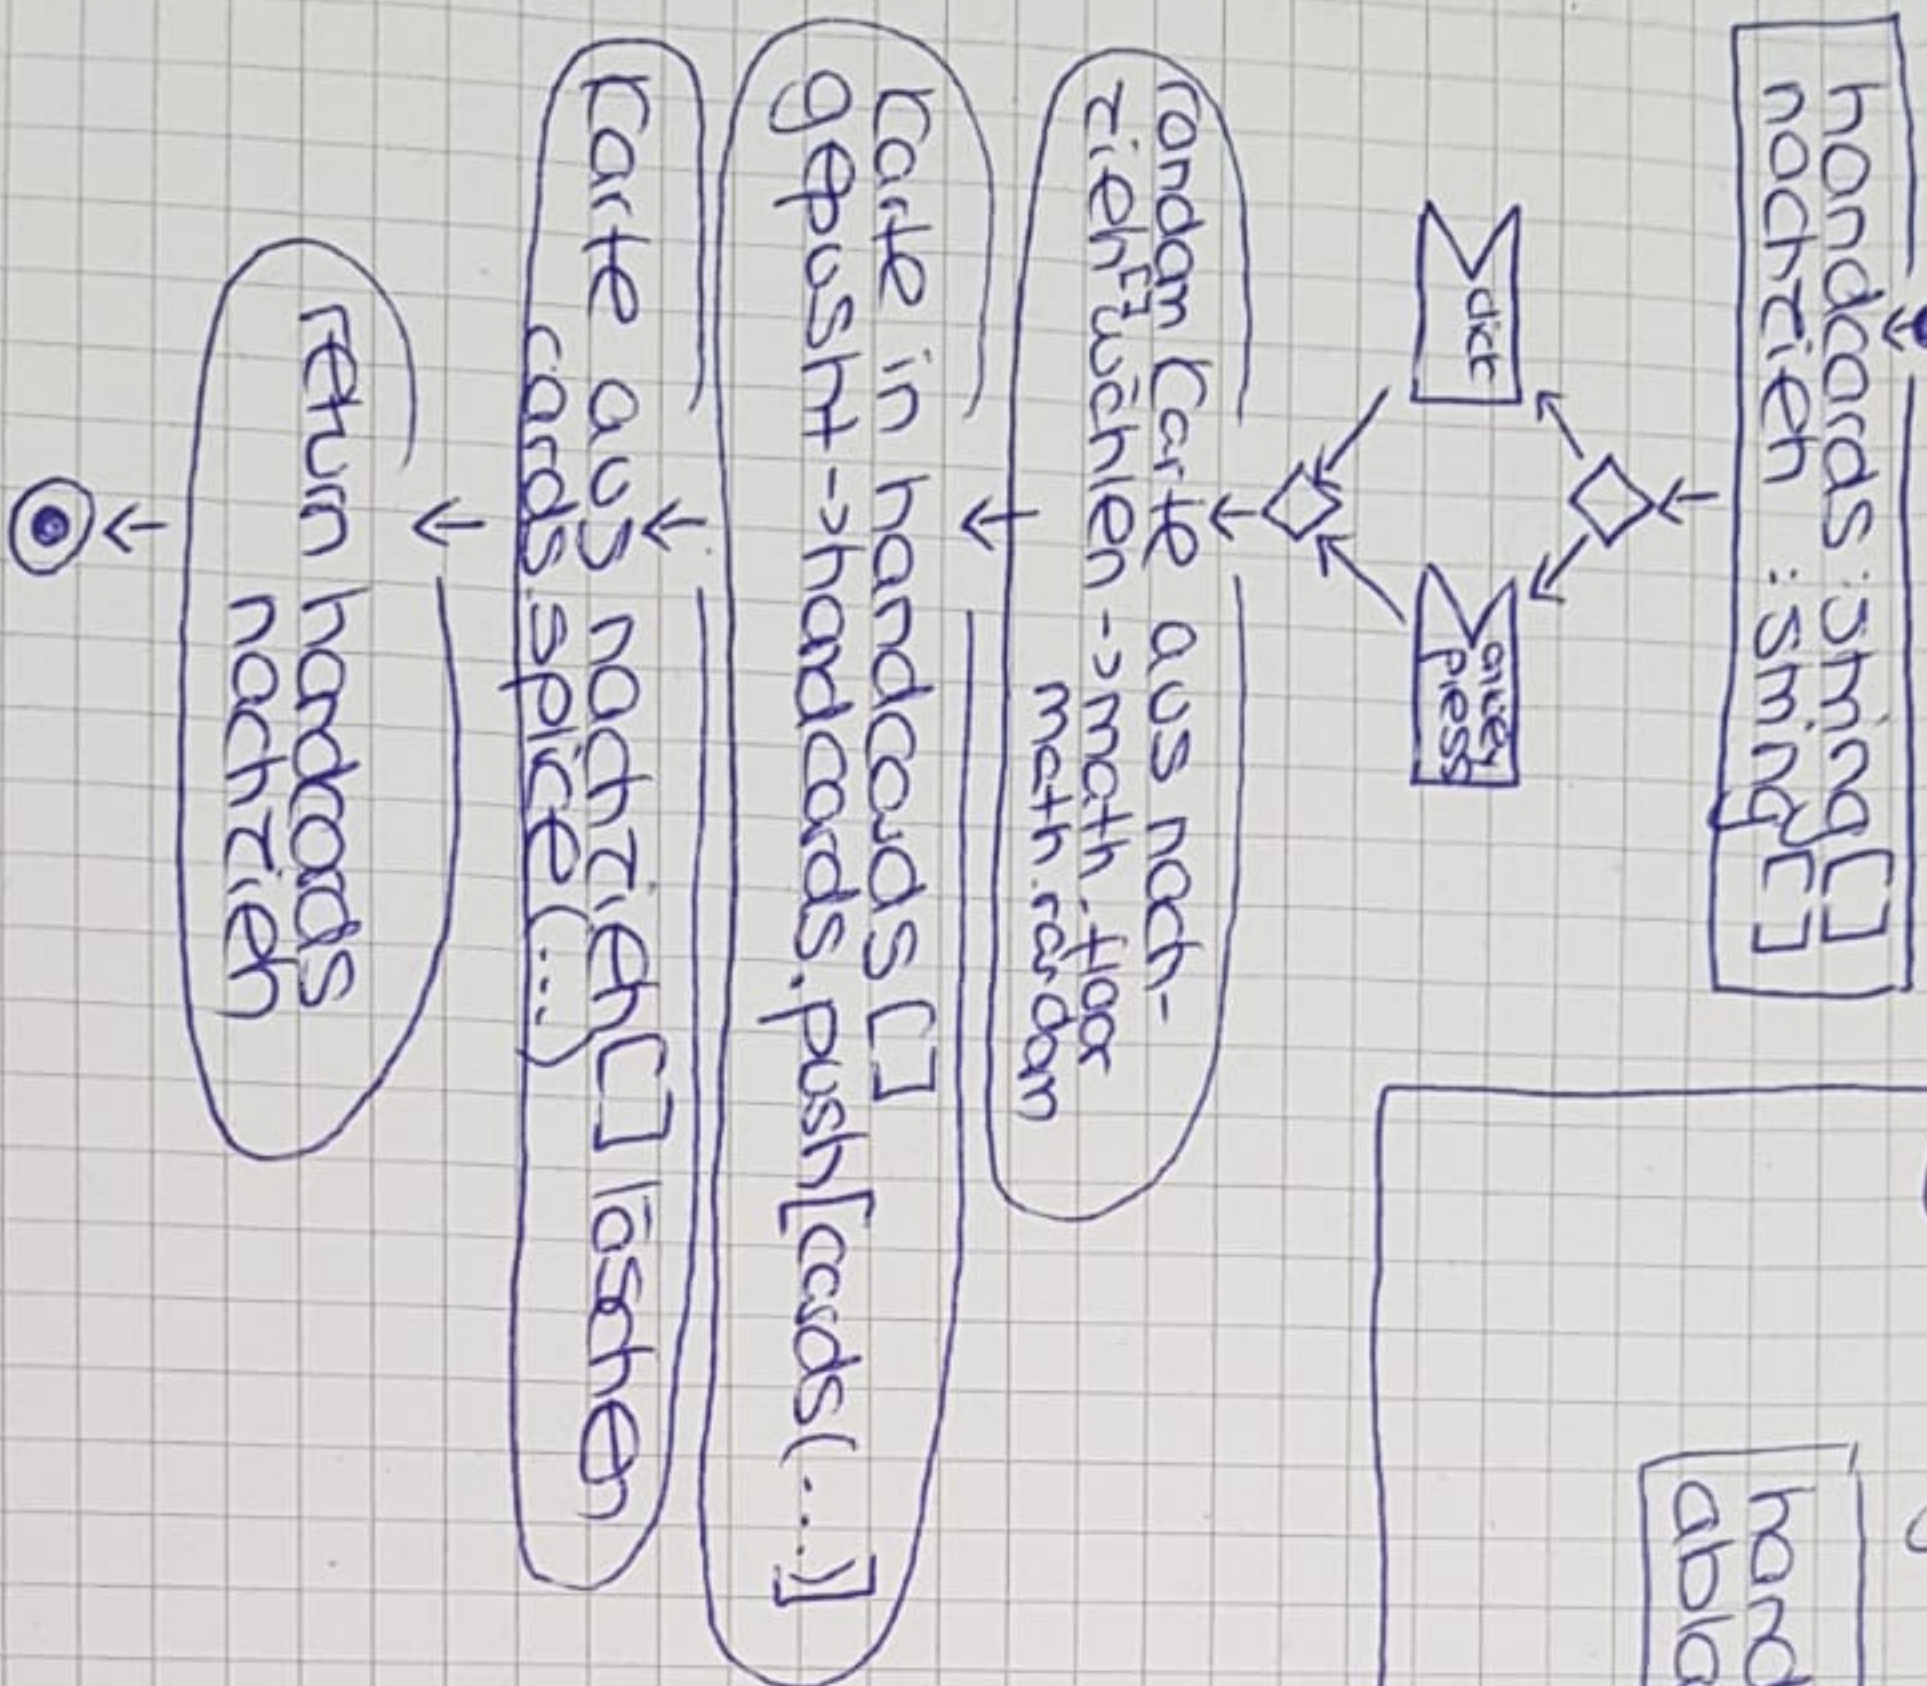 handcards :string[]
nachzieh :string[]
click
anykey
press
random Karte aus nach-
zieh[] wählen -> math.floor
math.random
Karte in handcards []
gepusht -> handcards.push[cards(....)]
Karte aus nachzieh[] löschen
cards.splice(...)
return handcards
nachzieh
hand
abla